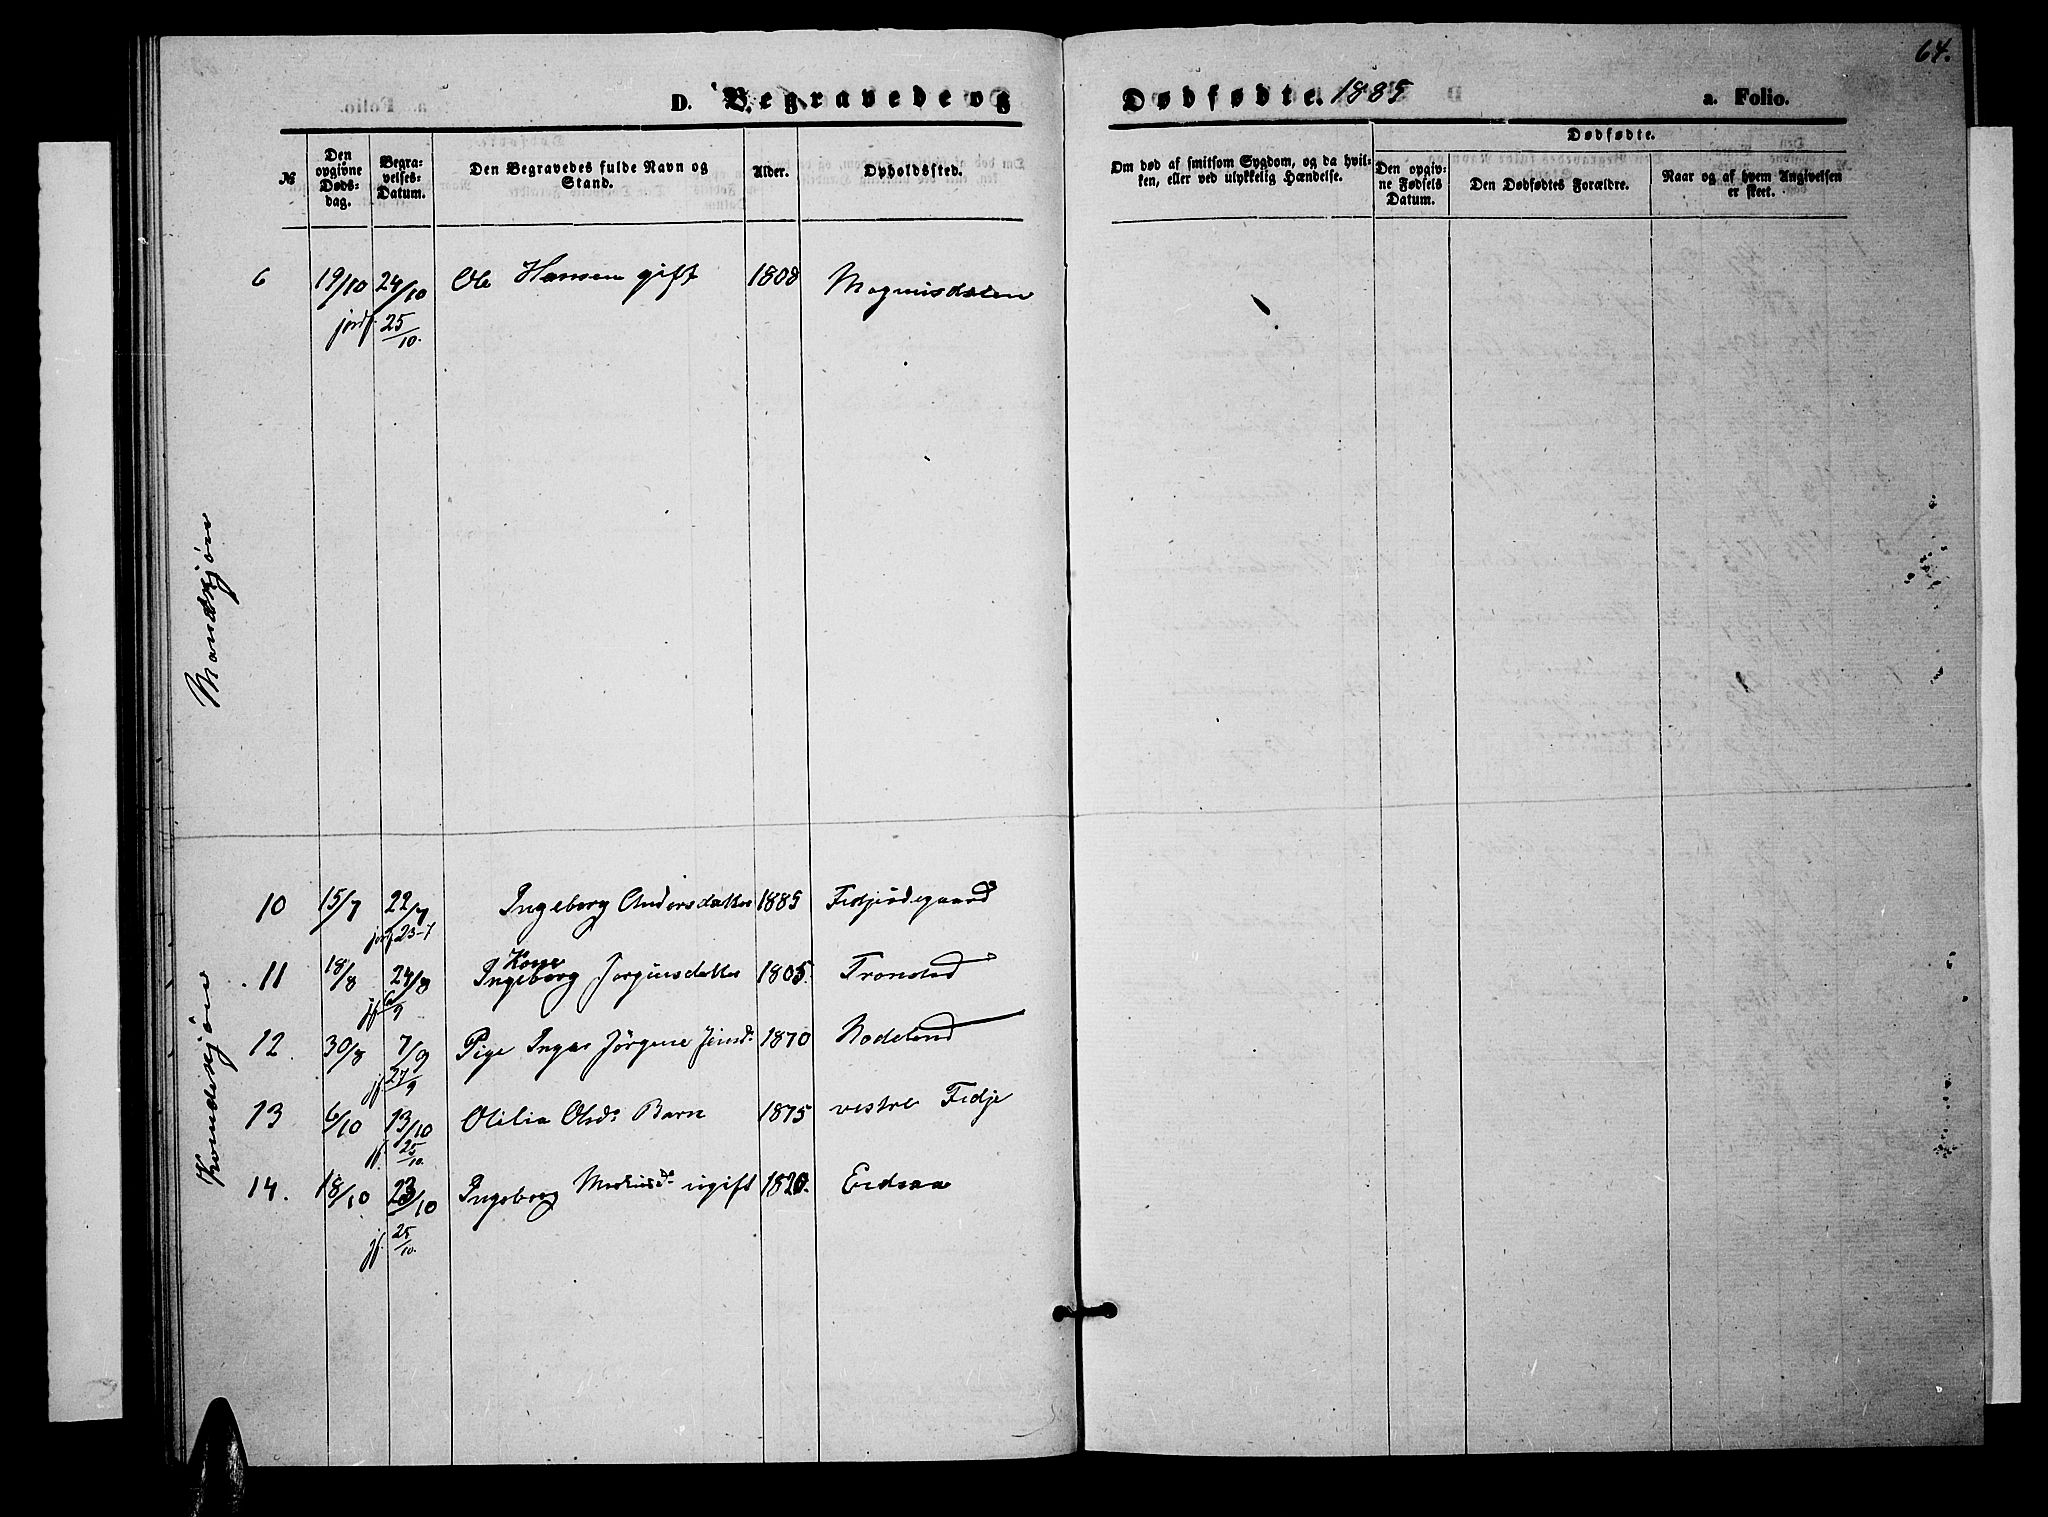 64.
D. Begravede og Dødfødte. 1885 a. Folio.
№
Den opgivne Døds-dag.
Begra-velses-Datum.
Den Begravedes fulde Navn og Stand.
Alder.
Opholdssted.
Om død af smitsom Sygdom, og da hvil-ken, eller ved ulykkelig Hændelse.
Dødfødte.
Den opgiv-ne Fødsels Datum.
Den Dødfødtes Forældre.
Naar og af hvem Angivelsen er skeet.
Mandkjøn
6 19/10 24/10 Ole Hansen gift 1808 Magnusdalen
jordf. 25/10.
Kvindekjøn
10 15/7 22/7 Ingeborg Andersdatter 1885 Fidjeødegaard
jordf 23-7
Kone
11 18/8 24/8 Ingeborg Jørginsdatter 1805. Tronstad
jf 6/9
12 30/8 7/9 Pige Inga Jørgine Jensd. 1870 Hodeland
jf. 27/9
13 6/10 13/10 Olilia Olsd. Barn 1875 vestre Fidje
jf. 25/10.
14. 18/10 23/10 Ingeborg ugift 1820. Eidsaa
jf. 25/10.